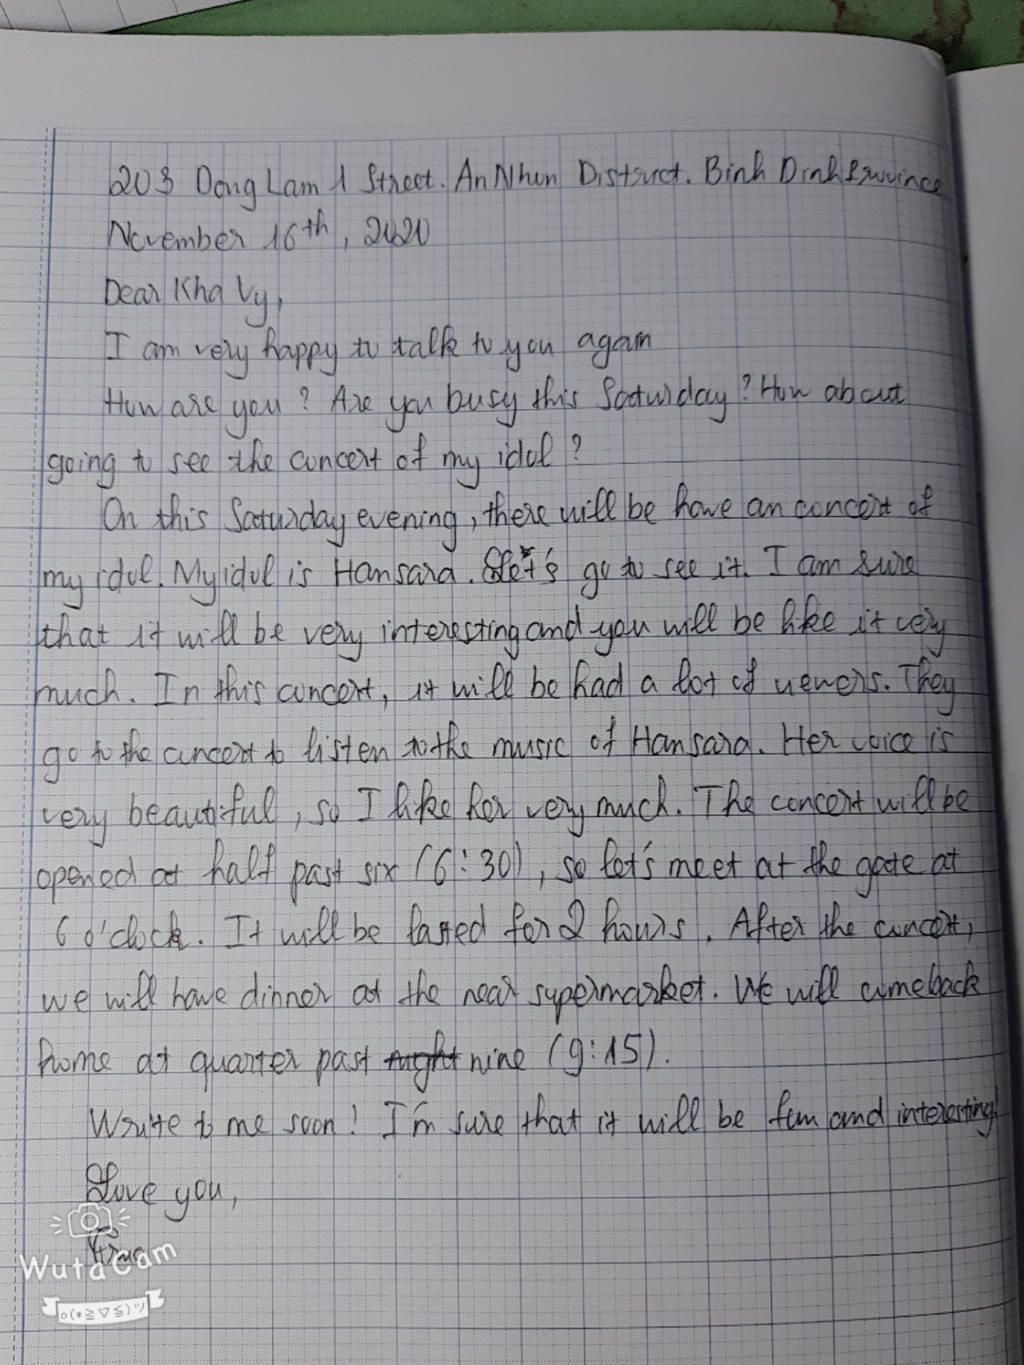 203 Dong Lam 1 Street. An Nhon District. Binh Dinh Province
November 16th, 2020
Dear Kha Vy,
I am very happy to talk to you again
How are you? Are you busy this Saturday? How about
going to see the concert of my idol?
On this Saturday evening, there will be have an concert of
my idol. My idol is Hansara. Let's go to see it. I am sure
that it will be very interesting and you will be like it very
much. In this concert, it will be had a lot of viewers. They
go to the concert to listen to the music of Hansara. Her voice is
very beautiful, so I like her very much. The concert will be
opened at half past six (6:30), so let's meet at the gate at
6 o'clock. It will be lasted for 2 hours. After the concert,
we will have dinner at the near supermarket. We will comeback
home at quarter past night nine (9:15).
Write to me soon! I'm sure that it will be fun and interesting!
Love you,
WutaCam
o(*≧▽≦)ツ